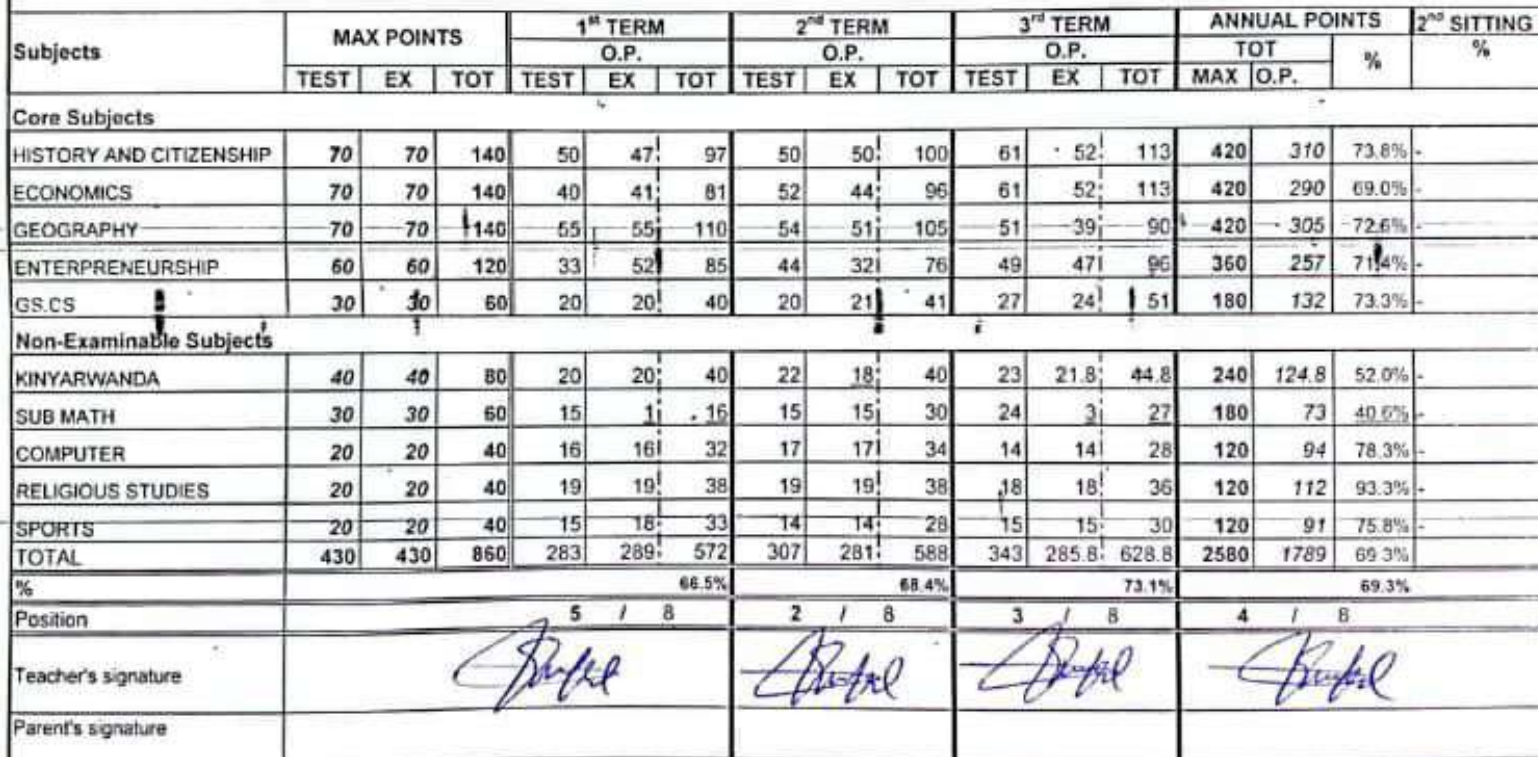 Subjects MAX POINTS 1st TERM 2nd TERM 3rd TERM ANNUAL POINTS 2nd SITTING
O.P. O.P. O.P. TOT % %
TEST EX TOT TEST EX TOT TEST EX TOT TEST EX TOT MAX O.P.
Core Subjects
HISTORY AND CITIZENSHIP 70 70 140 50 47 97 50 50 100 61 52 113 420 310 73.8% -
ECONOMICS 70 70 140 40 41 81 52 44 96 61 52 113 420 290 69.0% -
GEOGRAPHY 70 70 140 55 55 110 54 51 105 51 39 90 420 305 72.6% -
ENTERPRENEURSHIP 60 60 120 33 52 85 44 32 76 49 47 96 360 257 71.4% -
GS.CS 30 30 60 20 20 40 20 21 41 27 24 51 180 132 73.3% -
Non-Examinable Subjects
KINYARWANDA 40 40 80 20 20 40 22 18 40 23 21.8 44.8 240 124.8 52.0% -
SUB MATH 30 30 60 15 1 16 15 15 30 24 3 27 180 73 40.6% -
COMPUTER 20 20 40 16 16 32 17 17 34 14 14 28 120 94 78.3% -
RELIGIOUS STUDIES 20 20 40 19 19 38 19 19 38 18 18 36 120 112 93.3% -
SPORTS 20 20 40 15 18 33 14 14 28 15 15 30 120 91 75.8% -
TOTAL 430 430 860 283 289 572 307 281 588 343 285.8 628.8 2580 1789 69.3%
% 66.5% 68.4% 73.1% 69.3%
Position 5 / 8 2 / 8 3 / 8 4 / 8
Teacher's signature
Parent's signature